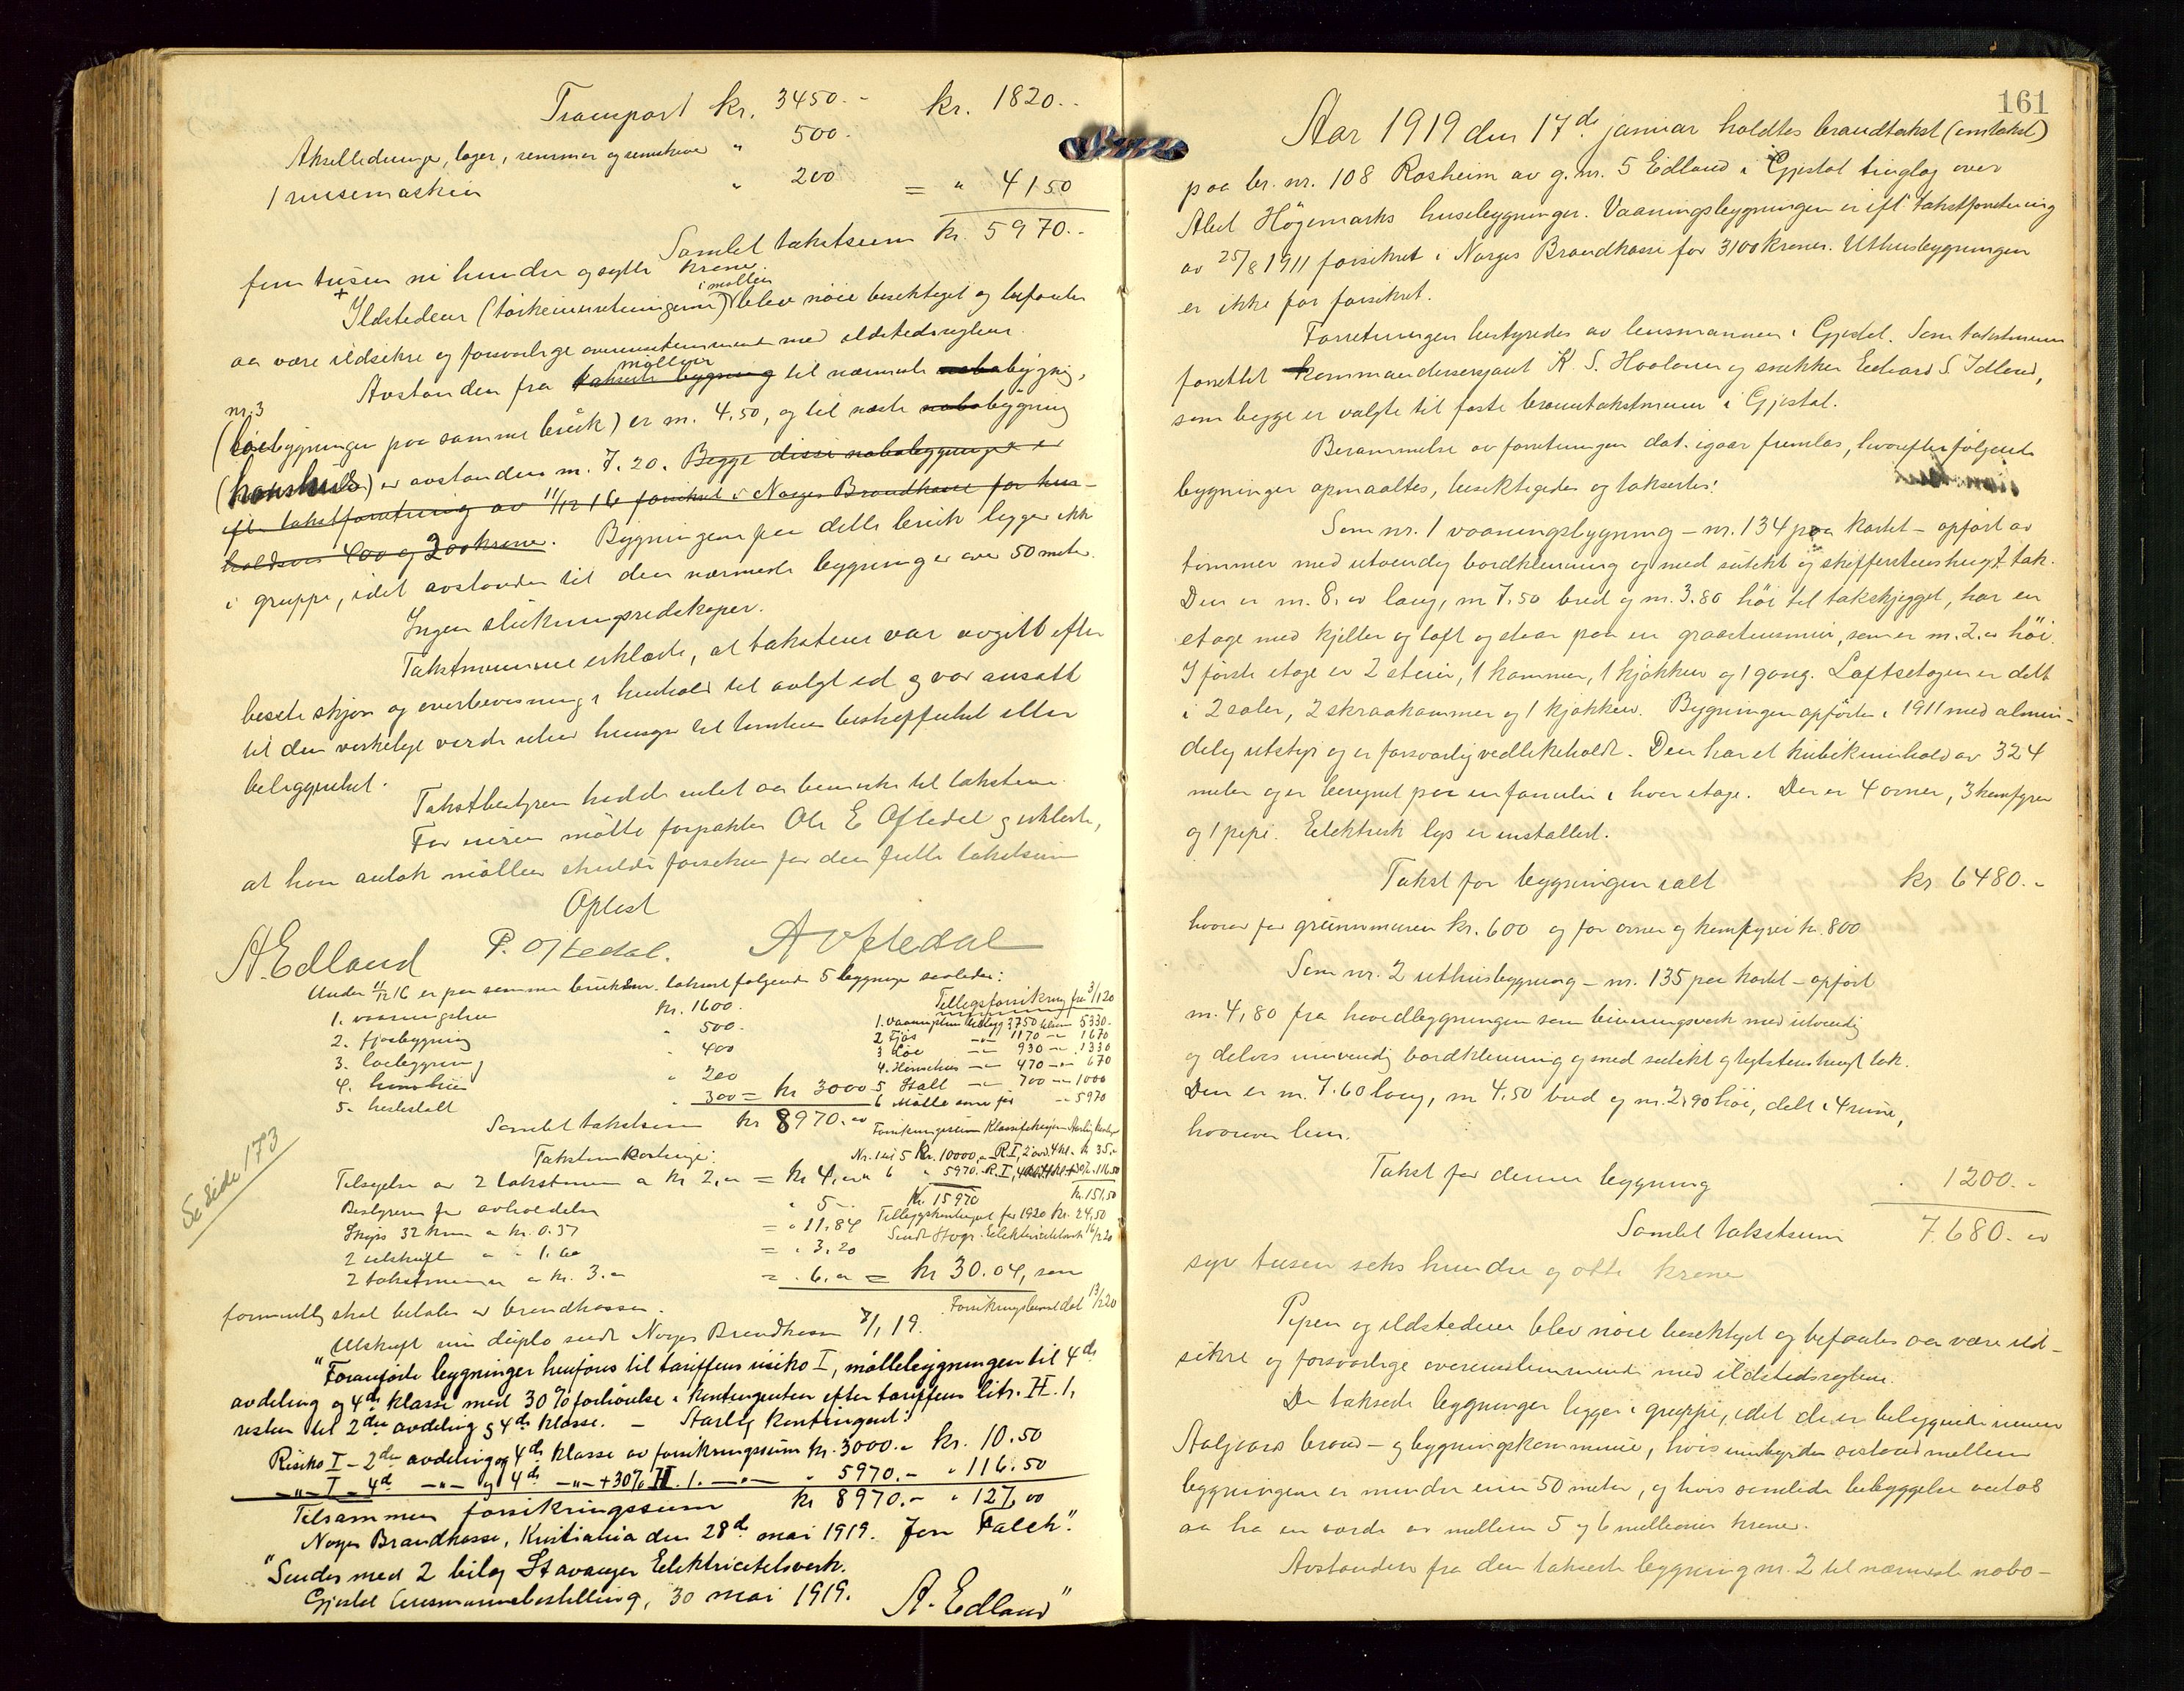 Transport kr. 3450.- kr. 1820.-
Akselledninger, lager, remmer og remskiver " 500.
1 rensemaskin " 200 = " 4150
Samlet takstsum kr. 5970.-
fem tusen ni hundre og sytti kroner.
+ i møllen
Ildstederne (törkeinnretningerne) blev nöie besiktiget og befantes
aa være ildsikre og forsvarlige overensstemmende med ildstedsreglerne.
möllen
Avstanden fra takserte bygning til nærmeste nabobygning,
nr. 3
(löebygningen paa samme bruk) er m. 4,50, og til næste nabobygning
(hönshus) er avstanden m. 7.20. Begge disse nabobygninger er
ifl. takstforretning av 11/12 16 forsikret i Norges Brandkasse for hen-
holdsvis 400 og 200 kroner. Bygningerne paa dette bruk ligger ikke
i gruppe, idet avstanden til den nærmeste bygning er over 50 meter.
Ingen slukningsredskaper.
Takstmennene erklærte, at taksterne var avgitt efter
beste skjön og overbevisning i henhold til avlagt ed og var ansatt
til den virkelige verdi uten hensyn til tomten beskaffenhet eller
beliggenhet.
Takstbestyreren hadde intet aa bemerke til taksterne.
For eieren mötte forpakter Ole E Oftedal og erklærte,
at han antok möllen skulde forsikres for den fulle takstsum
Oplest
A. Edland P. Oftedal. A Oftedal
Under 11/12 16 er paa samme bruksnr. taksert fölgende 5 bygninger saaledes:
1. vaaningshus kr. 1600.
2. fjösbygning " 500.
3. löebygning " 400
4. hönsehus " 200
5. hestestall " 300 = kr 3000
Samlet takstsum kr 8970.00
Tilleggsforsikring fra 3/1 20
1. Vaaningshus tillegg 3750 tilsam 5330-
2 Fjös -"- 1170 -"- 1670
3 Löe -"- 930 -"- 1330
4. Hönsehus -"- 470 -"- 670
5 Stall -"- 700 -"- 1000
6 Mölle som för -"- 5970
Forsikringssum Klassifikasjon Aarlig kontingent
Nr. 1 til 5 kr. 10000,- R.I, 2 avd. 4 kl. kr 35,-
6 " 5970.- R.I, 4 avd. 4 kl + 30% " 116.50
Kr. 15970 kr. 151,50
Tilleggskontingent for 1920 kr. 24,50
Sendt Stvgr. Elektricitetsverk 16/2 20
Forsikringsbevis dat 13/2 20
Takstomkostninger:
Tilsigelse av 2 takstmenn a kr 2,00 = kr 4,00
Bestyreren for avholdelse " 5.-
Skyss 32 km a kr. 0.37 = " 11.84
2 utskrift a " 1.60 = " 3.20
2 takstmenn a kr. 3.- = " 6.00 = kr 30.04, som
formentlig skal betales av brandkassen.
Utskrift in duplo sendt Norges Brandkasse 7/1 19.
"Foranförte bygninger henföres til tariffens risiko I, möllebygningen til 4de
avdeling og 4de klasse med 30% forhöielse i kontingenten efter tariffens litr. H. 1,
resten til 2den avdeling og 4de klasse. - Aarlig kontingent:
Risiko I - 2den avdeling og 4de klasse av forsikringssum kr. 3000.- kr. 10.50
-"- I - 4de -"- og 4de -"- +30% H. 1. -"- " 5970.- " 116.50
Tilsammen forsikringssum kr 8970.- " 127.00
Norges Brandkasse, Kristiania den 28de mai 1919. Jon Falch".
"Sendes med 2 bilag Stavanger Elektricitetsverk.
Gjestal lensmannsbestilling, 30 mai 1919. A. Edland"
Se side 173
161
Aar 1919 den 17de januar holdtes brandtakst (omtakst)
paa br. nr. 108 Rosheim av g. nr. 5 Edland i Gjestal tinglag over
Abel Högemarks husebygninger. Vaaningsbygningen er ifl. takstforretning
av 25/8 1911 forsikret i Norges Brandkasse for 3100 kroner. Uthusbygningen
er ikke för forsikret.
Forretningen bestyredes av lensmannen i Gjestal. Som takstmenn
forrettet kommandersersjant K. S. Haaland og snekker Edvard S. Idland,
som begge er valgte til faste branntakstmenn i Gjestal.
Berammelse av forretningen dat. igaar fremlas, hvorefter fölgende
bygninger opmaaltes, besiktigedes og taksertes:
Som nr. 1 vaaningsbygning - nr. 134 paa kartet - opfört av
tömmer med utvendig bordklædning og med sutekt og skifferstenshugt tak.
Den er m. 8,00 lang, m 7.50 bred og m. 3.80 höi til takskjegget, har en
etage med kjeller og loft og staar paa en graastensmur, som er m. 2.00 höi.
I förste etage er 2 stuer, 1 kammer, 1 kjökken og 1 gang. Loftsetagen er delt
i 2 saler, 2 skraakammer og 1 kjökken. Bygningen opförtes i 1911 med almin-
delig utstyr og er forsvarlig vedlikeholdt. Den har et kubikkinnhold av 324
meter og er beregnet paa en familie i hver etage. Der er 4 ovner, 3 komfyrer
og 1 pipe. Elektrisk lys er installert.
Takst for bygningen ialt kr 6480.-
hvorav for grunnmuren kr. 600 og for ovner og komfyrer kr. 800
Som nr. 2 uthusbygning - nr. 135 paa kartet - opfört
m. 4,80 fra hovedbygningen som binningsverk med utvendig
og delvis innvendig bordklædning og med sutekt og teglstenshengt tak.
Den er m. 7.60 lang, m 4,50 bred og m. 2,90 höi, delt i 4 rum,
hvorover lem.
Takst for denne bygning " 1200.-
Samlet takstsum 7.680.00
syv tusen seks hundre og otte kroner
Pipen og ildstederne blev nöie besiktiget og befantes aa være ild-
sikre og forsvarlige overensstemmende med ildstedsreglerne.
De takserte bygninger ligger i gruppe, idet de er beliggende innen
Aalgaard brand- og bygningskommune, hvis innbyrdes avstand mellem
bygningerne er mindre enn 50 meter, og hvis samlede bebyggelse antas
aa ha en værdi av mellem 5 og 6 millioner kroner.
Avstanden fra den takserte bygning nr. 2 til nærmeste nabo-